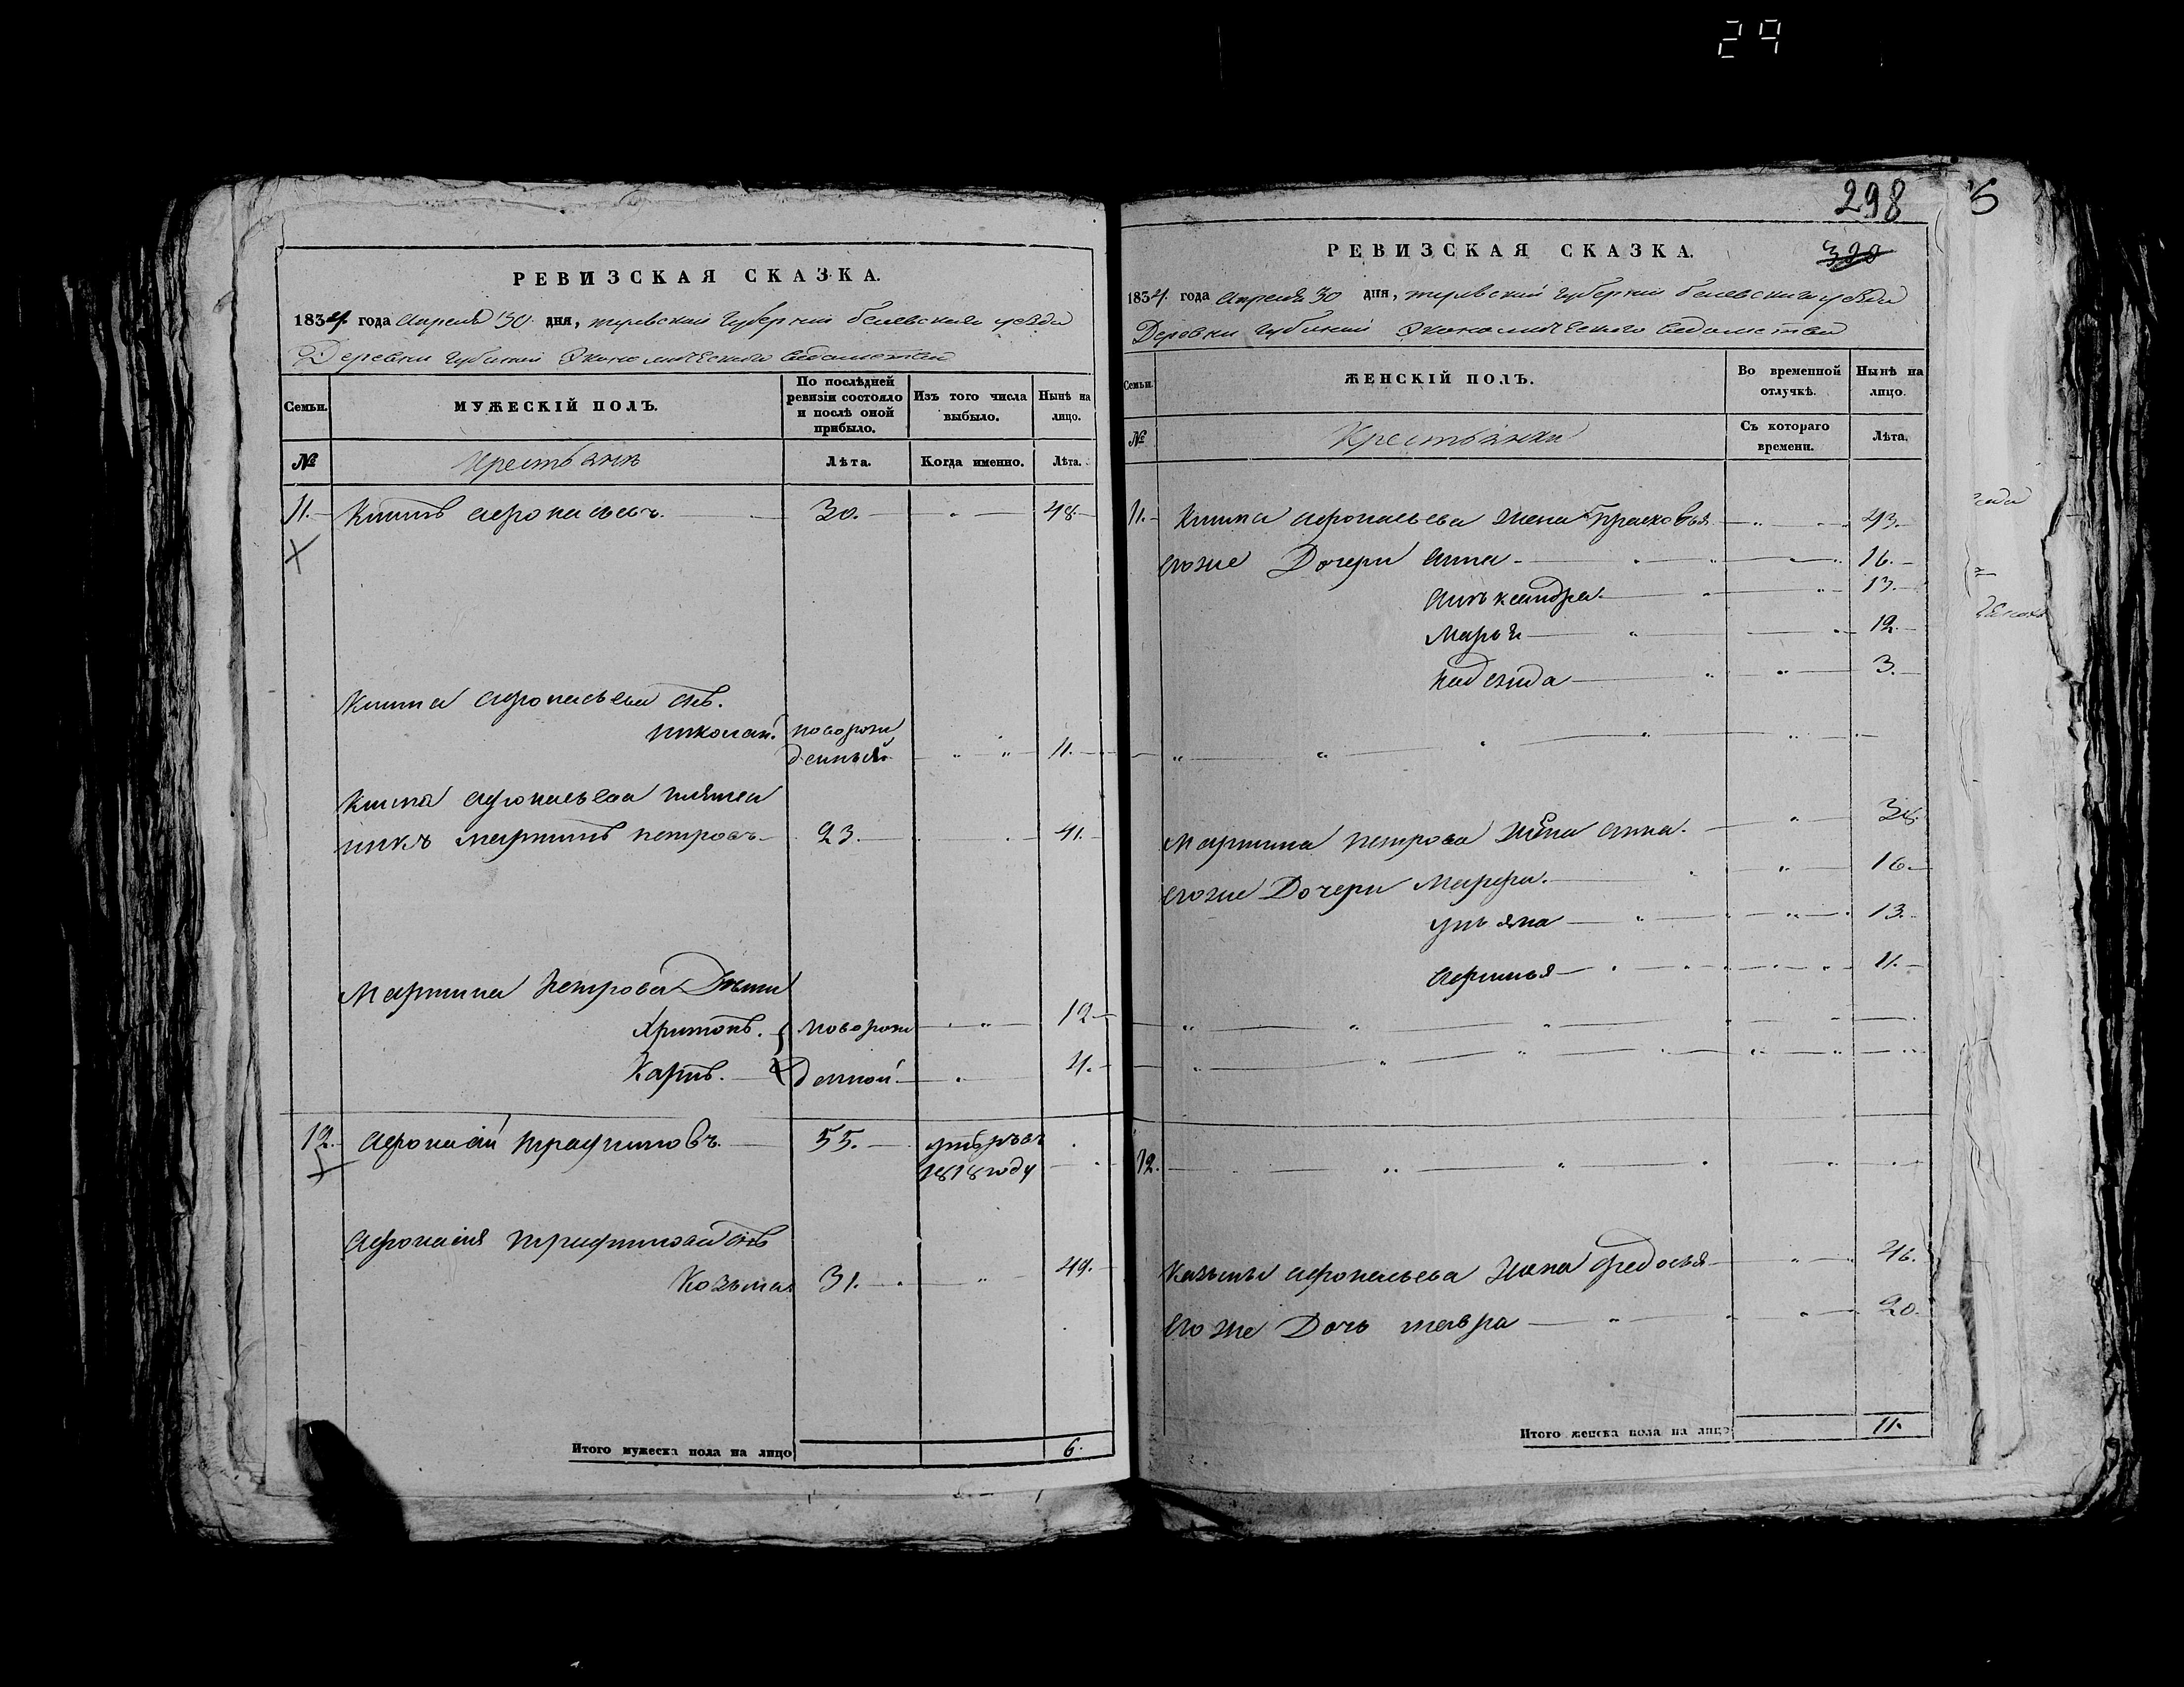 29
298
300
5
РЕВИЗСКАЯ СКАЗКА.
1834. года Апреля 30 дня, тулвской Губернии белевскаго уезда
Деревни Губиной Экономическаго ведомства
Семьи.
МУЖЕСКІЙ ПОЛЪ.
По послѣдней ревизіи состояло и послѣ оной прибыло.
Изъ того числа выбыло.
Нынѣ на лицо.
№
Крестьяня
Лѣта.
Когда именно.
Лѣта.
11. Китъ Афонасьевъ. 30. 48.
Кита Афонасьева сынъ.
Николай. новорожденный. 11.
Кита Афонасьева племен
никъ Мартинъ Петровъ 23. 41.
Мартина Петрова Дети
Хритонъ. новорож 12
Карпъ. денной. 4.
12. Афонасий Трафимовъ. 55. умеръ въ
1818 году
Афонасия Трифимова сынъ
Козьма 31. 49.
Итого мужеска пола на лицо 6.
РЕВИЗСКАЯ СКАЗКА.
1834. года Апреля 30 дня, тулвской Губернии белевскаго уезда
Деровни Губиной Экономическаго ведомства
Семьи.
ЖЕНСКІЙ ПОЛЪ.
Во временной отлучкѣ.
Нынѣ на лицо.
№
Крестьянки
Съ котораго времени.
Лѣта.
11. Кита Афонасьева жена Прасковья 43.
Егоже Дочери Анна 16.
Алъксандра. 13.
Марья 12
Надежда 3.
Мартина Петрова жена Анна.
Егоже Дочери Марфа. 16
Ульяна 13.
Афимья 11.
12.
Казьмы Афонасьева жана Федосья 46.
Егоже Дочь Мавра 20.
Итого женска пола на лицо 11.